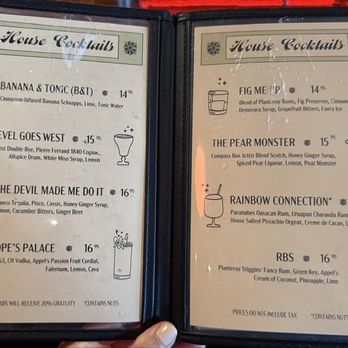 House Cocktails
BANANA & TONIC (B&T) 14⁹⁵
Cinnamon-Infused Banana Schnapps, Lime, Tonic Water
EVEL GOES WEST .15⁹⁵
est Double Rye, Pierre Ferrand 1840 Cognac,
Allspice Dram, White Miso Syrup, Lemon
THE DEVIL MADE ME DO IT 16⁹⁵
anco Tequila, Pisco, Cassis, Honey Ginger Syrup,
emon, Cucumber Bitters, Ginger Beer
OPE'S PALACE 16⁹⁵
CH Vodka, Appel's Passion Fruit Cordial,
Falernum, Lemon, Cava
ABS WILL RECEIVE 20% GRATUITY *CONTAINS NUTS
House Cocktails
FIG ME UP 14⁹⁵
Blend of Plantation Rums, Fig Preserves, Cinnamon
Demerara Syrup, Grapefruit Bitters, Fancy Ice
THE PEAR MONSTER 15⁹⁵
Compass Box Artist Blend Scotch, Honey Ginger Syrup,
Spiced Pear Liqueur, Lemon, Pear Monster
RAINBOW CONNECTION*
Paranubes Oaxacan Rum, Uruapan Charanda Rum
House Salted Pistachio Orgeat, Creme de Cacao, L
RBS 16⁹⁵
Planteray Stiggins' Fancy Rum, Green Key, Appel's
Cream of Coconut, Pineapple, Lime
PRICES DO NOT INCLUDE TAX *CONTAINS NUTS